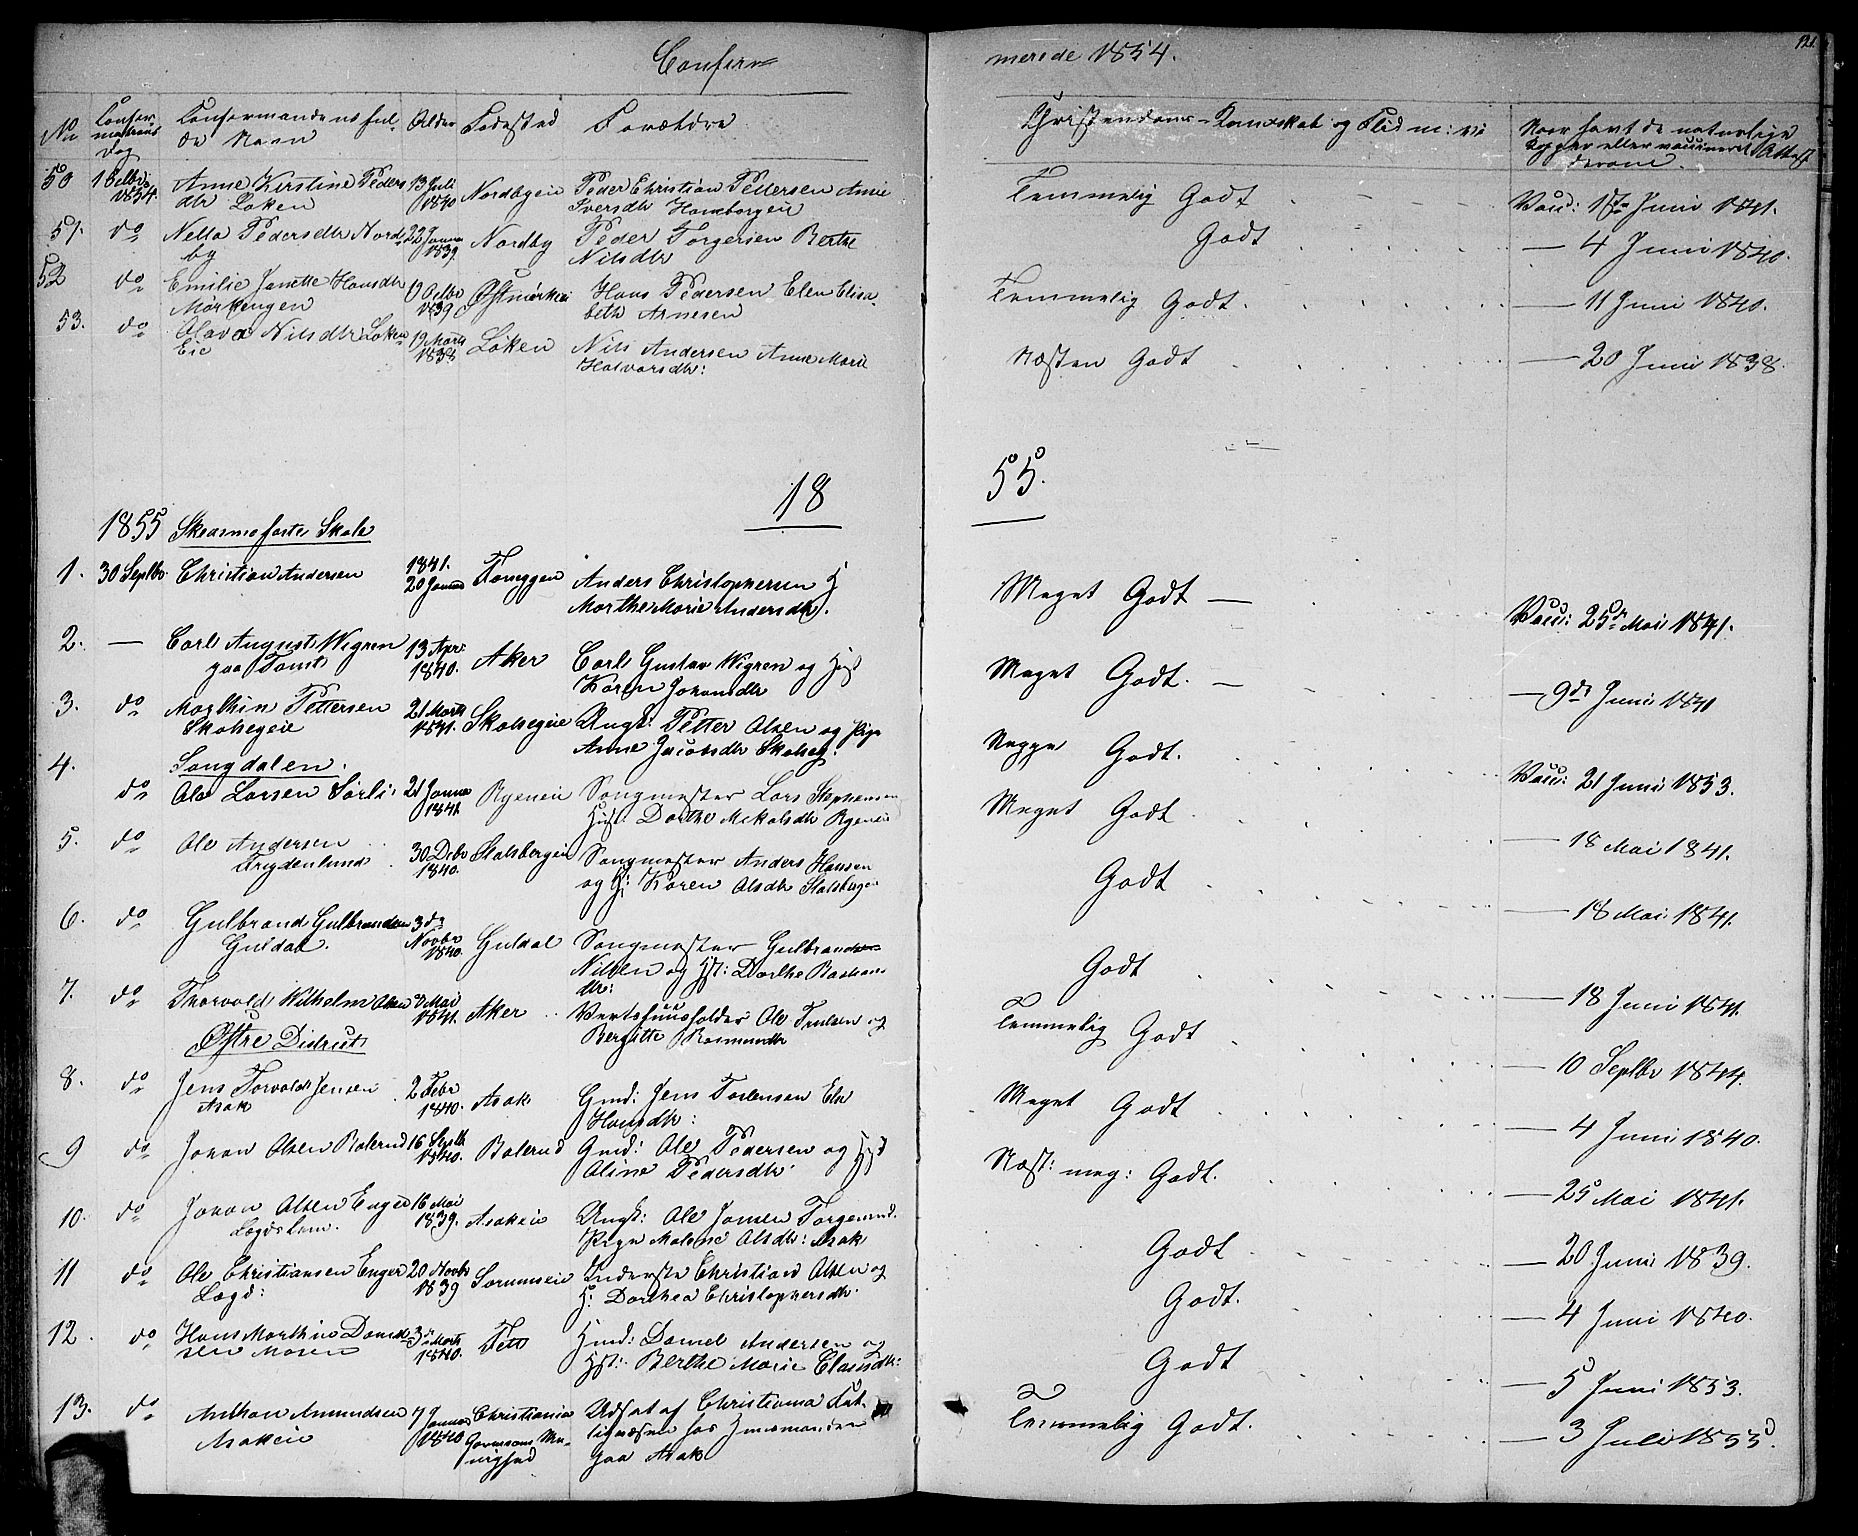 Confir=
merede 1854.
121.
No
Confir
mations
dag
Confirmandens ful-
de Navn
Alder
Fødested
Forældre
Christendoms-Kundskab og Flid m: v:
Naar havt de naturlige
Kopper eller vaccineret
50 1 Octbr 1854. Anne Kirstine Peders
dtr Løken
13 Juli 1840
Nordbyeie
Peder Christian Pettersen Anne
Iversdtr Haneborgeie
Temmelig Godt
Vacc: 1ste Juni 1841.
51. do Nella Pedersdtr Nord=
by
22 Janua 1839
Nordby
Peder Torgersen Berthe
Nilsdtr
Godt
— 4 Juni 1840.
52 do Emilie Janette Hansdtr
Mørkengen
Octbr 1839
Østmørken
Hans Pedersen Elen Elisa
beth Arnesen
Temmelig Godt.
— 11 Juni 1840.
53. do Olava Nilsdtr Løken
Eie
19 Marts 1838
Løken
Nils Andersen Anne Marie
Halvorsdtr:
Næsten Godt
— 20 Juni 1838.
18
55.
1855 Skedsmo faste Skole
1. 30 Septbr. Christian Andersen
1841. 20 Janua
Anders Christophersen H
Marthe Marie Andersdtr.
Meget Godt —
Vacc: 25de Mai 1841.
2. — Carl August Wigren
paa Tomt
13 Apr: 1840.
Aker
Carl Gustav Wigren og Hst
Karen Johansdtr
Meget Godt. —
— 9de Juni 1841
3. do Mathin Pettersen
Skohegeie
21 Marts 1841.
Skohegeie
Ungk: Petter Olsen og Pige
Anne Jacobsdtr Skoheg:
Godt.
Vacc: 21 Juni 1853.
4.
Songdalen.
do Ole Larsen Sørli
21 Janua 1841
Ryeneie
Sangmester Lars Stephensen
Hst: Dorthe Mikalsdtr Ryeneie
Meget Godt
— 18 Mai 1841.
5. do Ole Andersen
Frydenlund
30 Debr 1840.
Stalsbergeie
Sangmester Anders Hansen
og H: Karen Olsdtr Stalsbergei
Godt
— 18 Mai 1841.
6. do Gulbrand Gulbrandsen
Guldal.
3de Novbr 1840.
Guldal
Sangmester Gulbrand
Nilsen og Hst: Dorthe Bastians
dtr:
Godt
— 18 Juni 1841.
7. do Thorvald Wilhelm Olsen
Mai 1841.
Aker
Vertshuusholder Ole Trulsen og
Bergitte Rasmusdtr
Temmelig Godt
— 10 Septbr 1844.
Østre Distrikt
8. do Jens Torvald Jensen
Asak
2 Febr 1840.
Asak
Gmd: Jens Torstensen Else
Hansdtr:
Meget Godt
— 4 Juni 1840.
9 do Johan Olsen Bølerud
16 Septb 1840.
Bølerud
Gmd: Ole Pedersen og Hst
Oline Pedersdtr.
Næst: meg: Godt.
— 25 Mai 1841.
10. do Johan Olsen Enger
Lægdslem.
16 Mai 1839.
Asakeie
Ungk: Ole Jansen Torgerrud.
Pige Malene Olsdtr: Asak
Godt
— 20 Juni 1839.
11 do Ole Christiansen Enger
Lægd:
20 Novbr 1839
Sørumseie
Inderste Christian Olsen og
H: Dorthea Christophersdtr.
Godt.
— 4 Juni 1840.
12. do Hans Marthin Daniel
sen Mosen
3de Marts 1840.
Fett
Hmd: Daniel Andersen og
Hst: Berthe Marie Clausdtr:
Godt
— 5 Juni 1853.
13. do Anthon Amundsen
Asakeie
7 Januar 1840
Christiania
Udsat af Christiania Fat-
tigvæsen hos Huusmanden
paa Asak
Temmelig Godt.
— 3 Juli 1855.